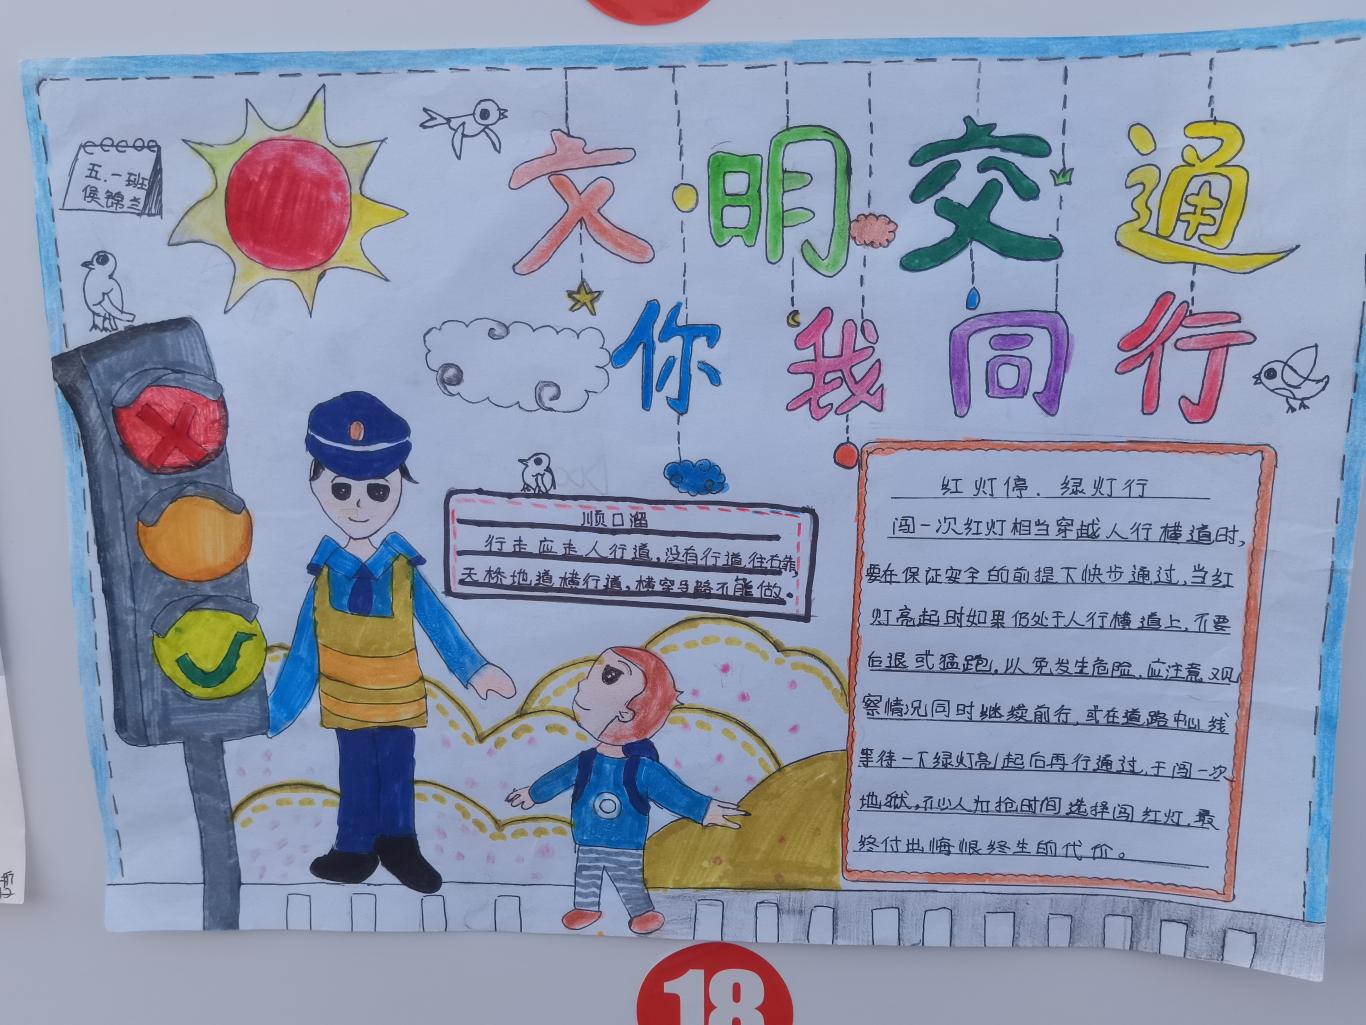 五.一班
侯锦兰
文明交通
你我同行
顺口溜
行走应走人行道,没有行道往右靠,
天桥地道横行道,横穿马路不能做。
红灯停、绿灯行
闯一次红灯相当穿越人行横道时,
要在保证安全的前提下快步通过,当红
灯亮起时如果仍处于人行横道上,不要
后退或猛跑,以免发生危险,应注意观
察情况同时继续前行,或在道路中心线
等待一下绿灯亮起后再行通过,于闯一次
地狱。不少人为抢时间选择闯红灯,最
终付出悔恨终生的代价。
18